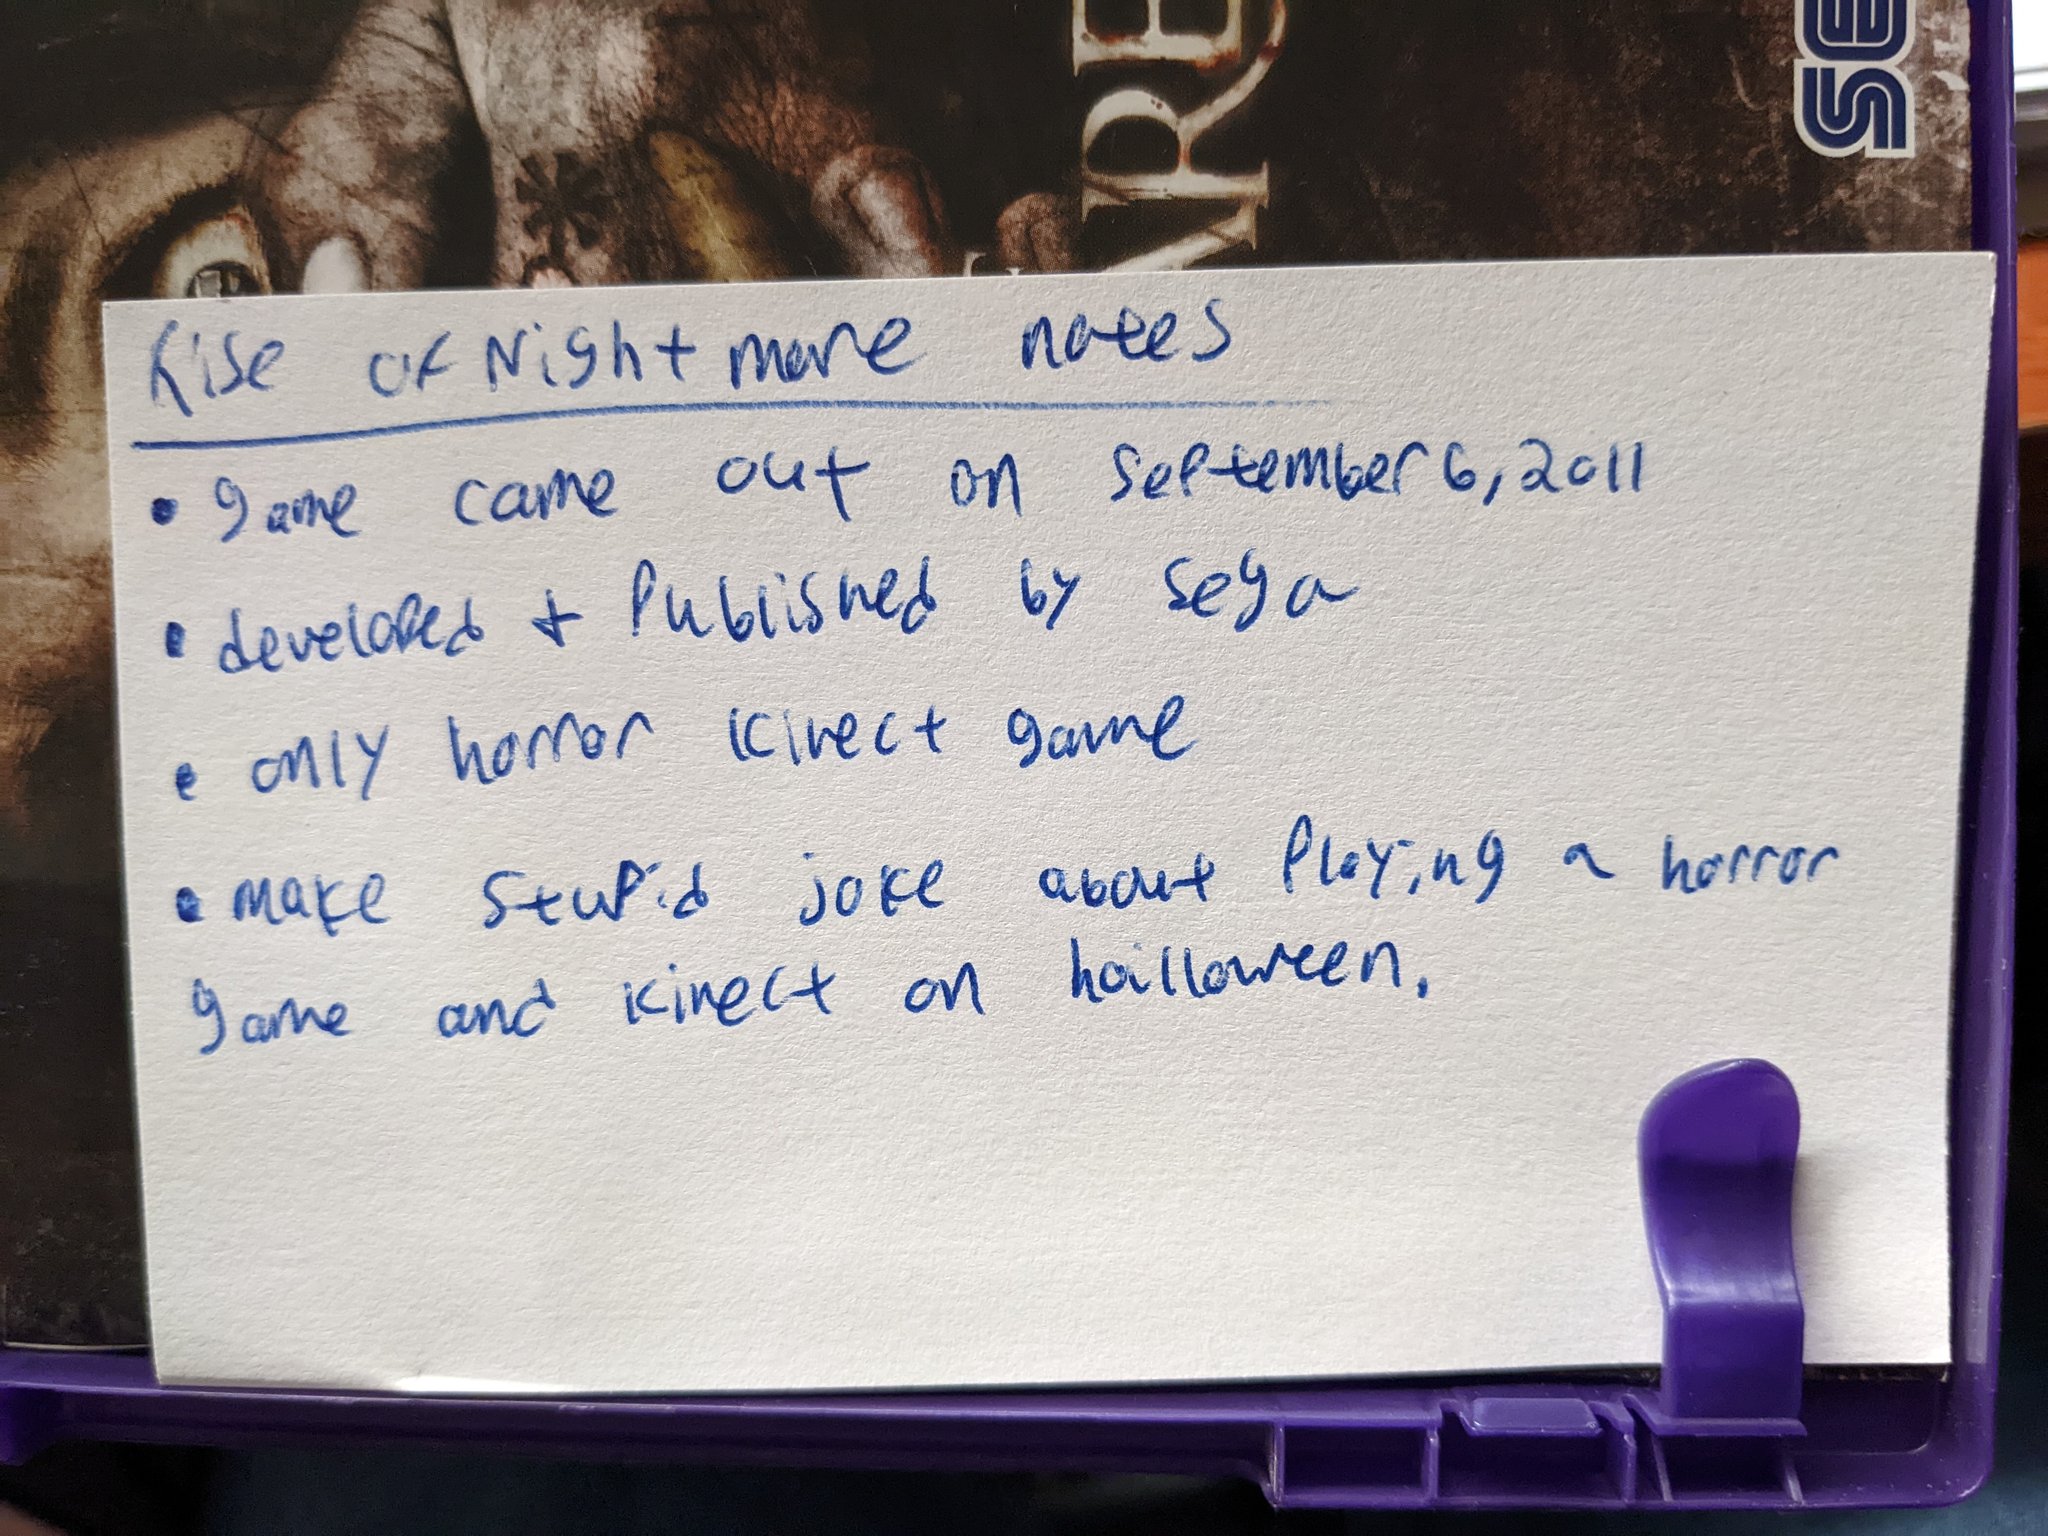 ARE
SE
Rise of Nightmare notes
• game came out on September 6, 2011
• developed + Published by sega
• only horror kinect game
• make stupid joke about Playing a horror
game and kinect on hailloween.